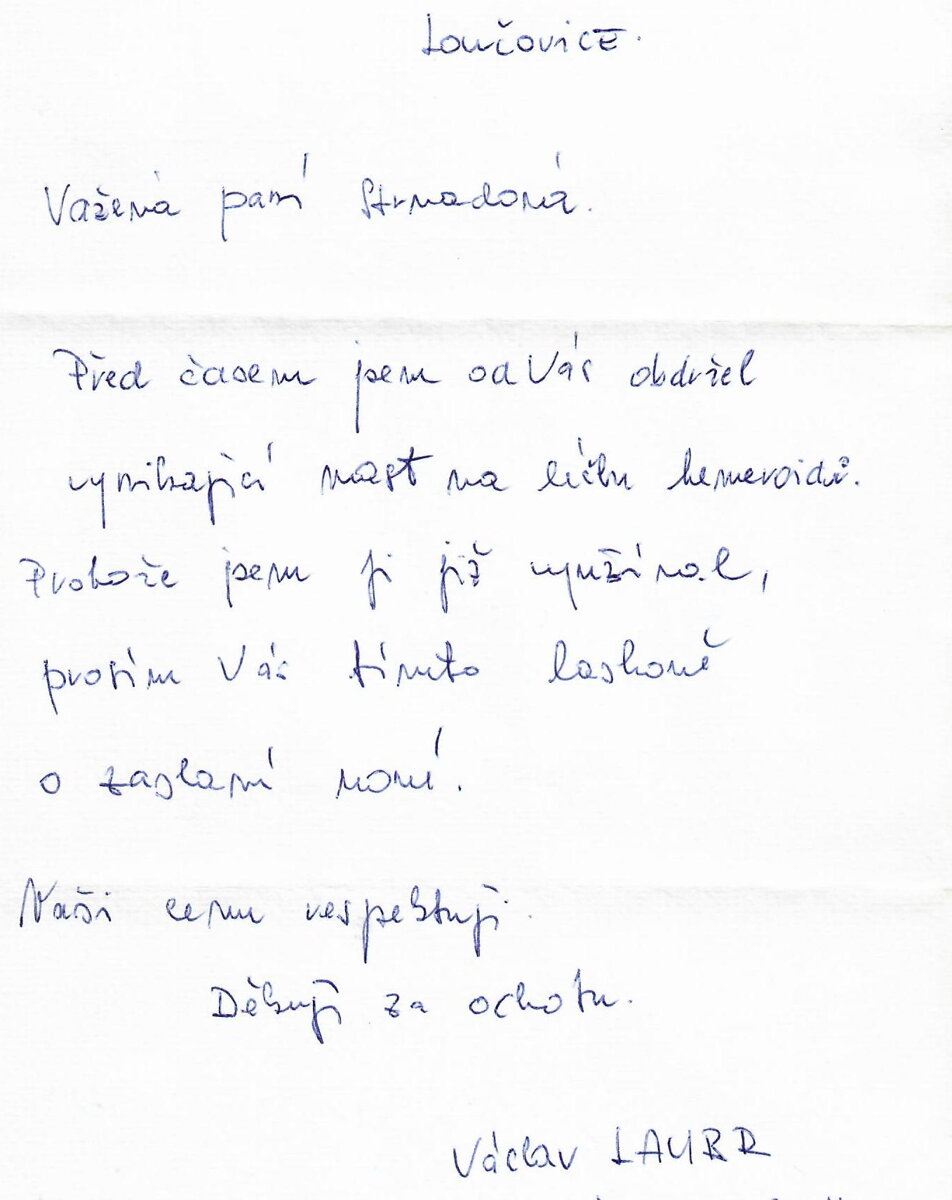 Loučovice.
Vážená paní Strnadová.
Před časem jsem od Vás obdržel
vynikající mast na léčbu hemeroidů.
Protože jsem ji již využíval,
prosím Vás tímto laskavě
o zaslaní nové.
Vaši cenu respektuji.
Děkuji za ochotu.
Václav LAUBR